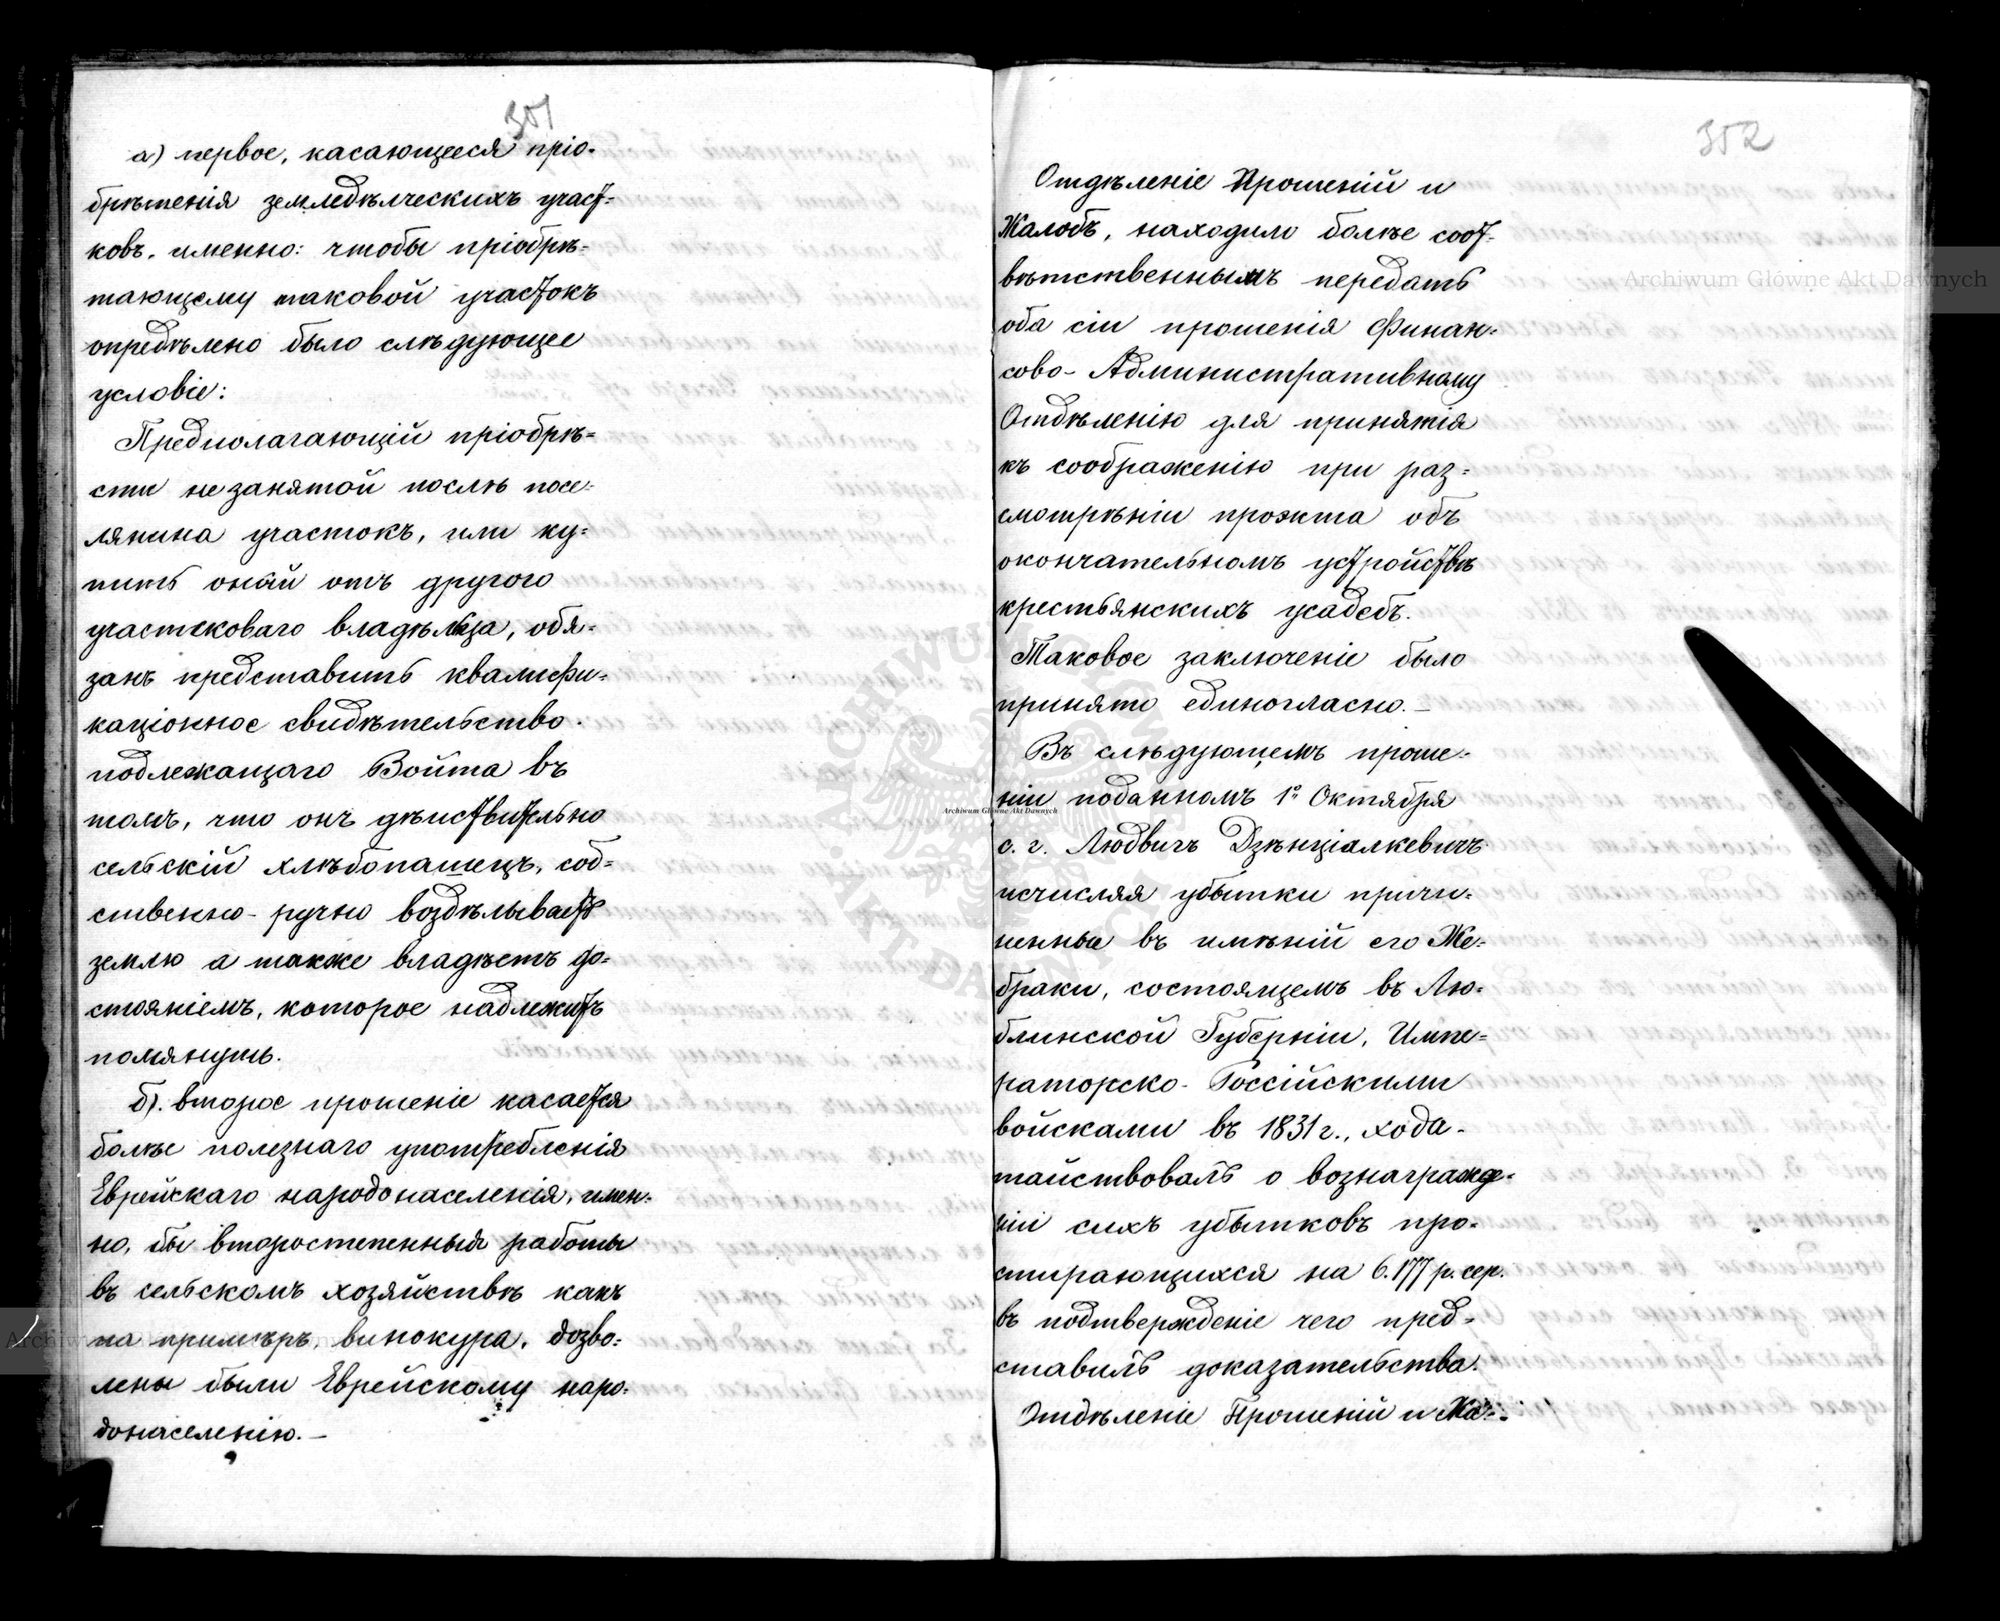 351
а) первое, касающееся прiо-
брѣтенiя земледѣлческихъ участ-
ковъ. именно: чтобы прiобрѣ-
тающему таковой участокъ
опредѣлено было слѣдующее
условiе:
Предполагающiй прiобрѣ-
сти не занятой послѣ посе-
лянина участокъ, или ку-
пить оный отъ другого
участковаго владѣльца, обя-
занъ представить квалифи-
кацiонное свидѣтельство
подлежащаго Войта въ
томъ, что онъ дѣиствительно
сельскiй хлѣбопашецъ, соб-
ственно-ручно воздѣлываетъ
землю а также владѣетъ до-
стоянiемъ, которое надлежитъ
помянуть.
б). второе прошенiе касается
болѣе полезнаго употребленiя
Еврейскаго народонаселенiя, имен-
но, бы второстепенныя работы
въ сельскомъ хозяйствѣ какъ
на примѣръ, винокура, дозво-
лены были Еврейскому наро-
донаселенiю. —
352
Отдѣленiе Прошенiй и
Жалобъ, находило болѣе соот-
вѣтственнымъ передать
оба сiи прошенiя Финан-
сово-Административному
Отдѣленiю для принятiя
къ соображенiю при раз-
смотрѣнiи проэкта объ
окончательномъ устройствѣ
крестьянскихъ усадебъ.
Таковое заключенiе было
принято единогласно. —
Въ слѣдующемъ проше-
нiи поданномъ 1го Октября
с. г. Людвигъ Дзѣнцiалкевичъ
исчисляя убытки причи-
ненные въ имѣнiй его Же-
браки, состоящемъ въ Лю-
блинской Губернiи, Импе-
раторско-Россiйскими
войсками въ 1831 г., хода-
тайствовалъ о вознагражде-
нiи сихъ убытковъ про-
стирающихся на 6.177 р. сер.
въ подтвержденiе чего пред-
ставилъ доказательства.
Отдѣленiе Прошенiй и Жа-
Archiwum Główne Akt Dawnych
Archiwum Główne Akt Dawnych